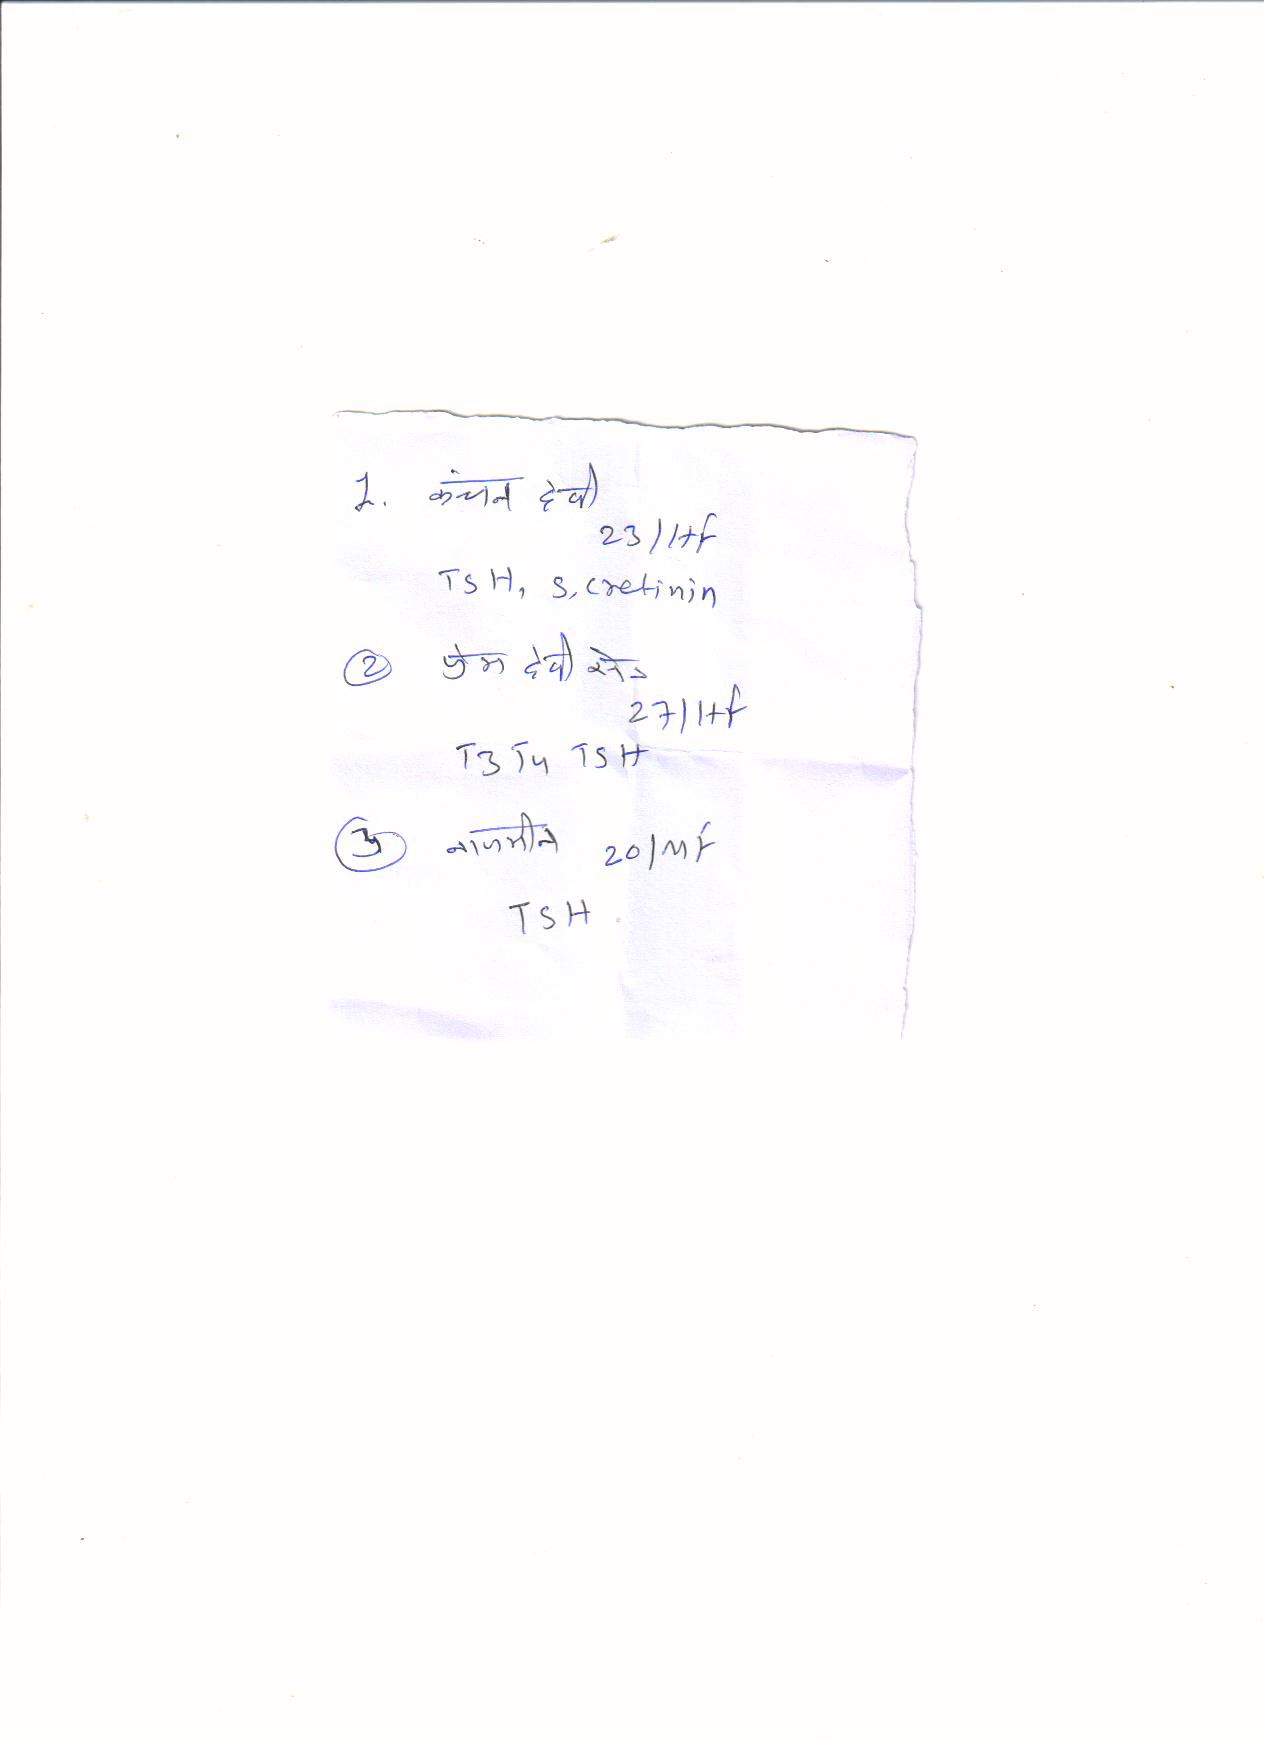 1. कंचन देवी
23/HF
TSH, S. cretinin
2 प्रेम देवी
27/HF
T3 T4 TSH
3 20/MF
TSH